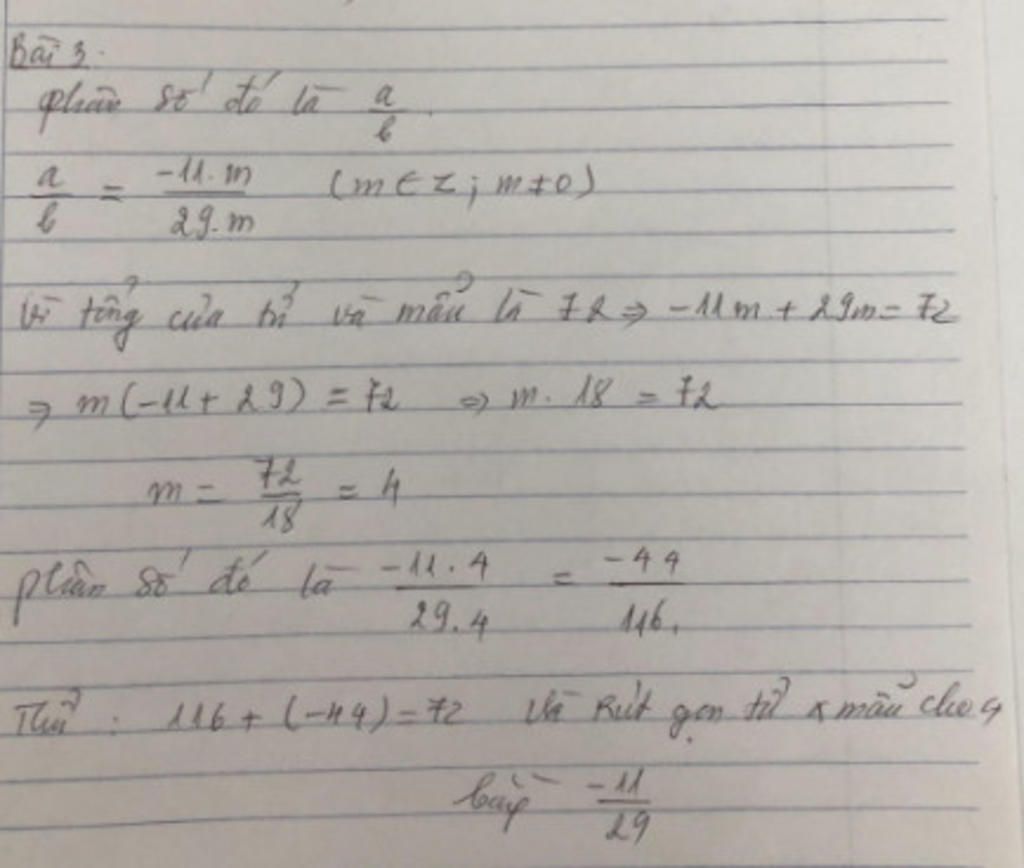 Bài 3.
phân số đó là a/b.
a/b = -11.m/29.m (m ∈ Z ; m ≠ 0)
Vì tổng của tử và mẫu là 72 ⇒ -11m + 29m = 72
⇒ m(-11 + 29) = 72 ⇒ m. 18 = 72
m = 72/18 = 4
phân số đó là -11.4/29.4 = -44/116.
Thử : 116 + (-44) = 72 và Rút gọn tử & mẫu cho 4
bằng -11/29